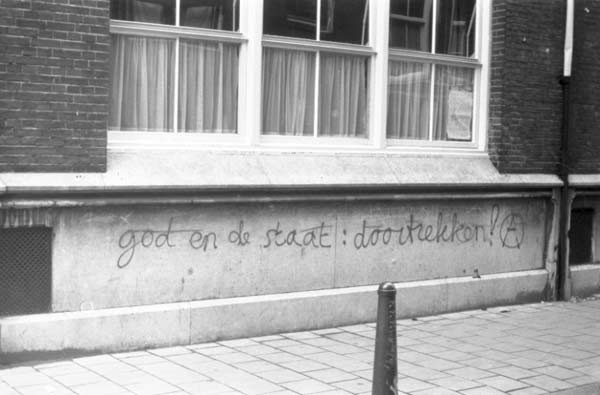 god en de staat: doortrekken! Ⓐ